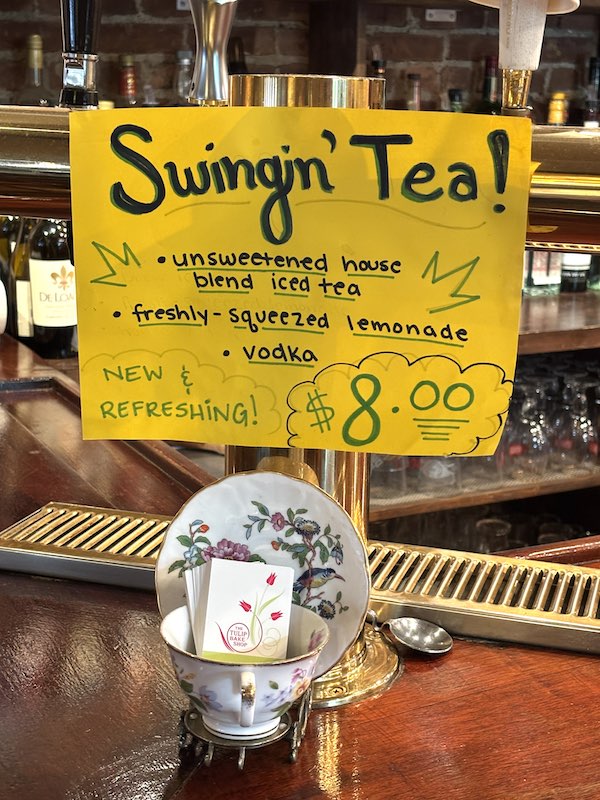 Swingin' Tea!
• unsweetened house
blend iced tea
• freshly-squeezed lemonade
• vodka
NEW &
REFRESHING!
$8.00
THE
TULIP
BAKE
SHOP